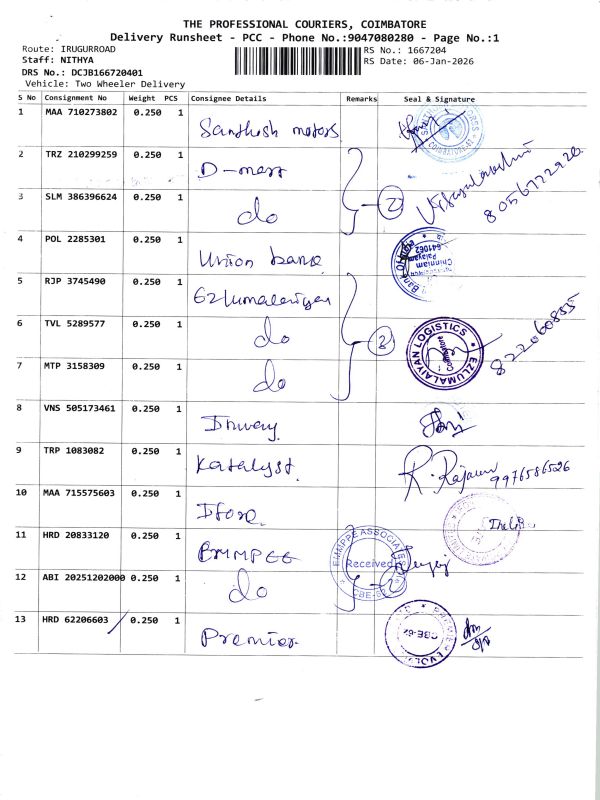 THE PROFESSIONAL COURIERS, COIMBATORE
Delivery Runsheet - PCC - Phone No.:9047080280 - Page No.:1
Route: IRUGURROAD
RS No.: 1667204
Staff: NITHYA
RS Date: 06-Jan-2026
DRS No.: DCJB166720401
Vehicle: Two Wheeler Delivery
S No Consignment No Weight PCS Consignee Details Remarks Seal & Signature
1 MAA 710273802 0.250 1 Santhosh motors
2 TRZ 210299259 0.250 1 D-mart
3 SLM 386396624 0.250 1 do 2 8056722920
4 POL 2285301 0.250 1 Union bank 641062
5 RJP 3745490 0.250 1 Ezlumalaiyan
6 TVL 5289577 0.250 1 do 3 EZLUMALAIYAN LOGISTICS
7 MTP 3158309 0.250 1 do
8 VNS 505173461 0.250 1
9 TRP 1083082 0.250 1 Katalyst R. Rajan 9976586526
10 MAA 715575603 0.250 1
11 HRD 20833120 0.250 1 Received
12 ABI 20251202000 0.250 1 do 2
13 HRD 62206603 0.250 1 Premier CBE-62